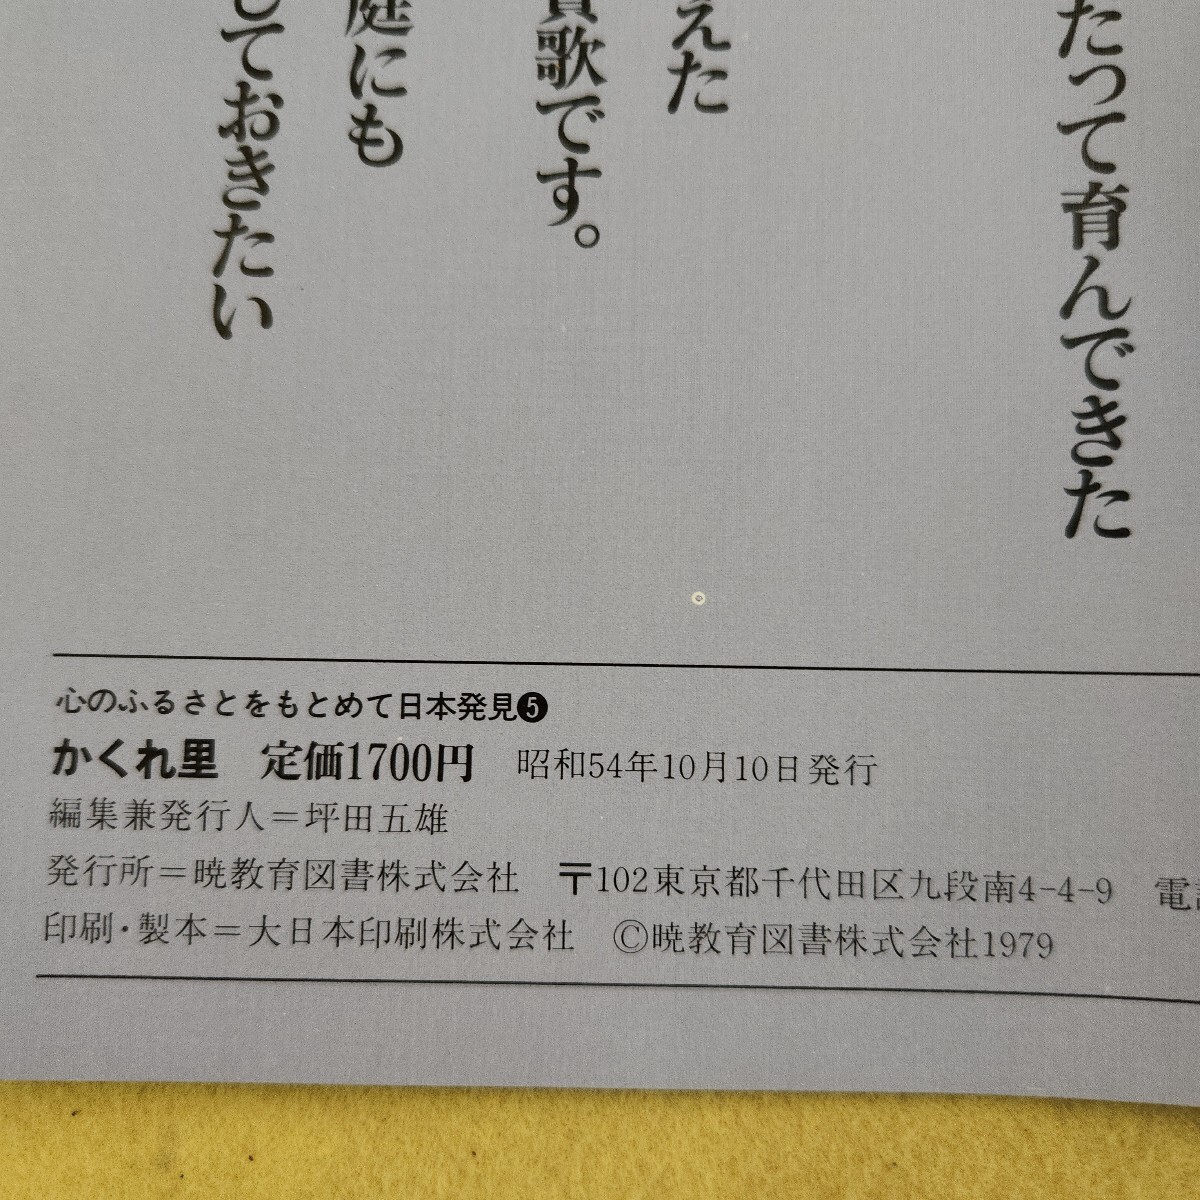 たって育んできた
えた
歌です。
庭にも
ておきたい
心のふるさとをもとめて日本発見❺
かくれ里　定価1700円　昭和54年10月10日発行
編集兼発行人＝坪田五雄
発行所＝暁教育図書株式会社　〒102東京都千代田区九段南4-4-9　電
印刷・製本＝大日本印刷株式会社　©暁教育図書株式会社1979